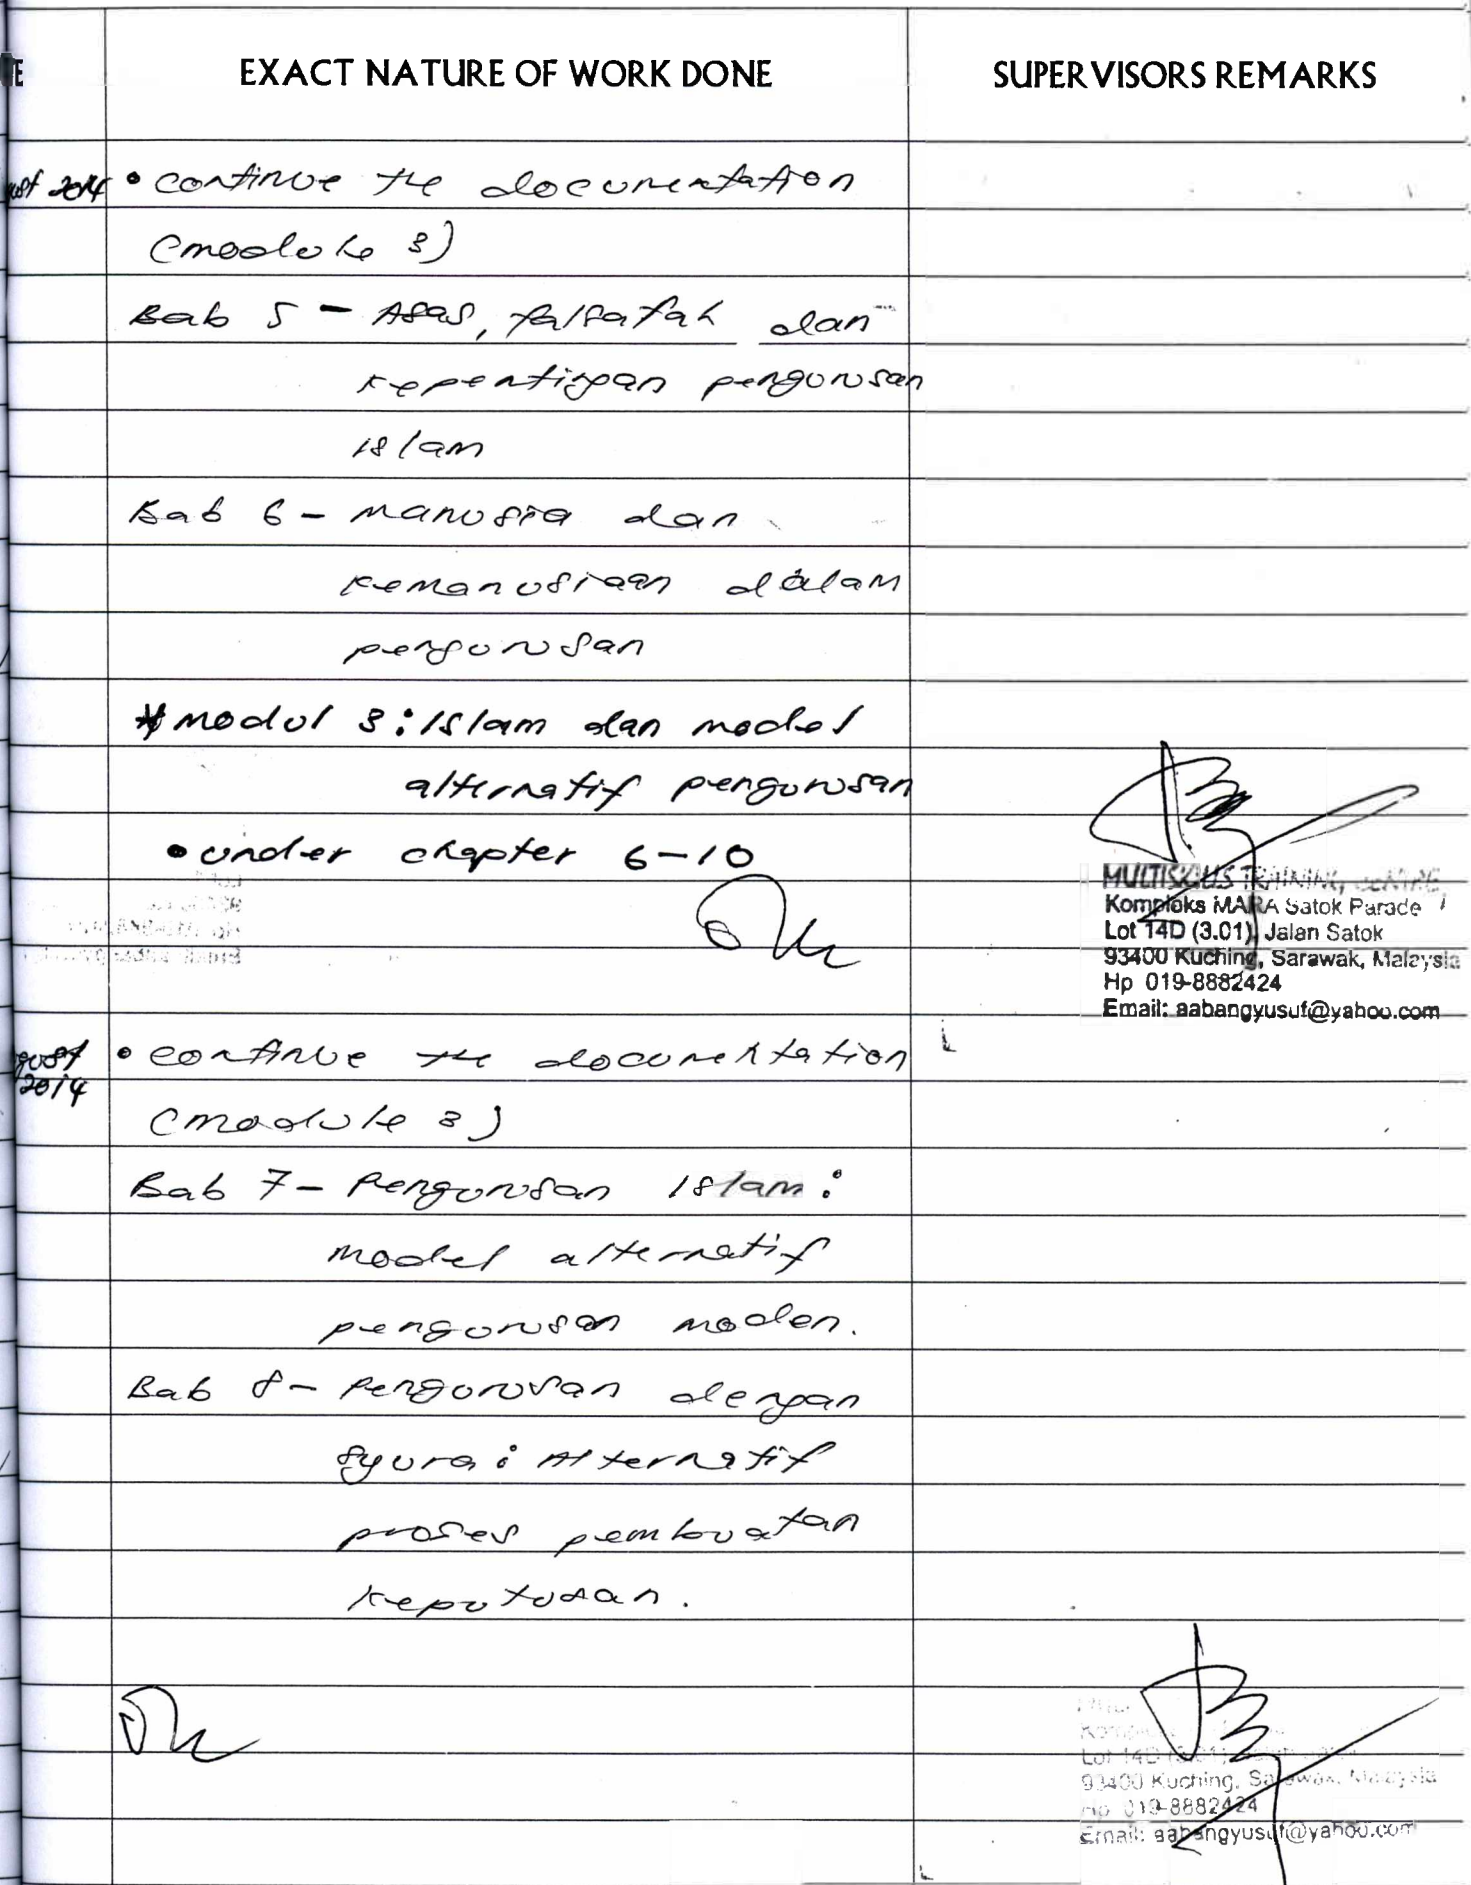 E
EXACT NATURE OF WORK DONE
SUPERVISORS REMARKS
ust 2014
• continue the documentation
(module 3)
Bab 5 - Asas, falsafah dan
kepentingan pengurusan
islam
Bab 6 - manusia dan
kemanusiaan dalam
pengurusan
* modul 3: Islam dan model
alternatif pengurusan
• under chapter 6-10
MULTISKILLS TRAINING CENTRE
Kompleks MARA Satok Parade
Lot 14D (3.01), Jalan Satok
93400 Kuching, Sarawak, Malaysia
Hp 019-8882424
Email: aabangyusuf@yahoo.com
gust
2014
• continue the documentation
(module 3)
Bab 7 - Pengurusan Islam:
model alternatif
pengurusan moden.
Bab 8 - Pengurusan dengan
syura: Alternatif
proses pembuatan
keputusan.
Lot 14D
93400 Kuching, Sarawak, Malaysia
Hp 019-8882424
Email: aabangyusuf@yahoo.com